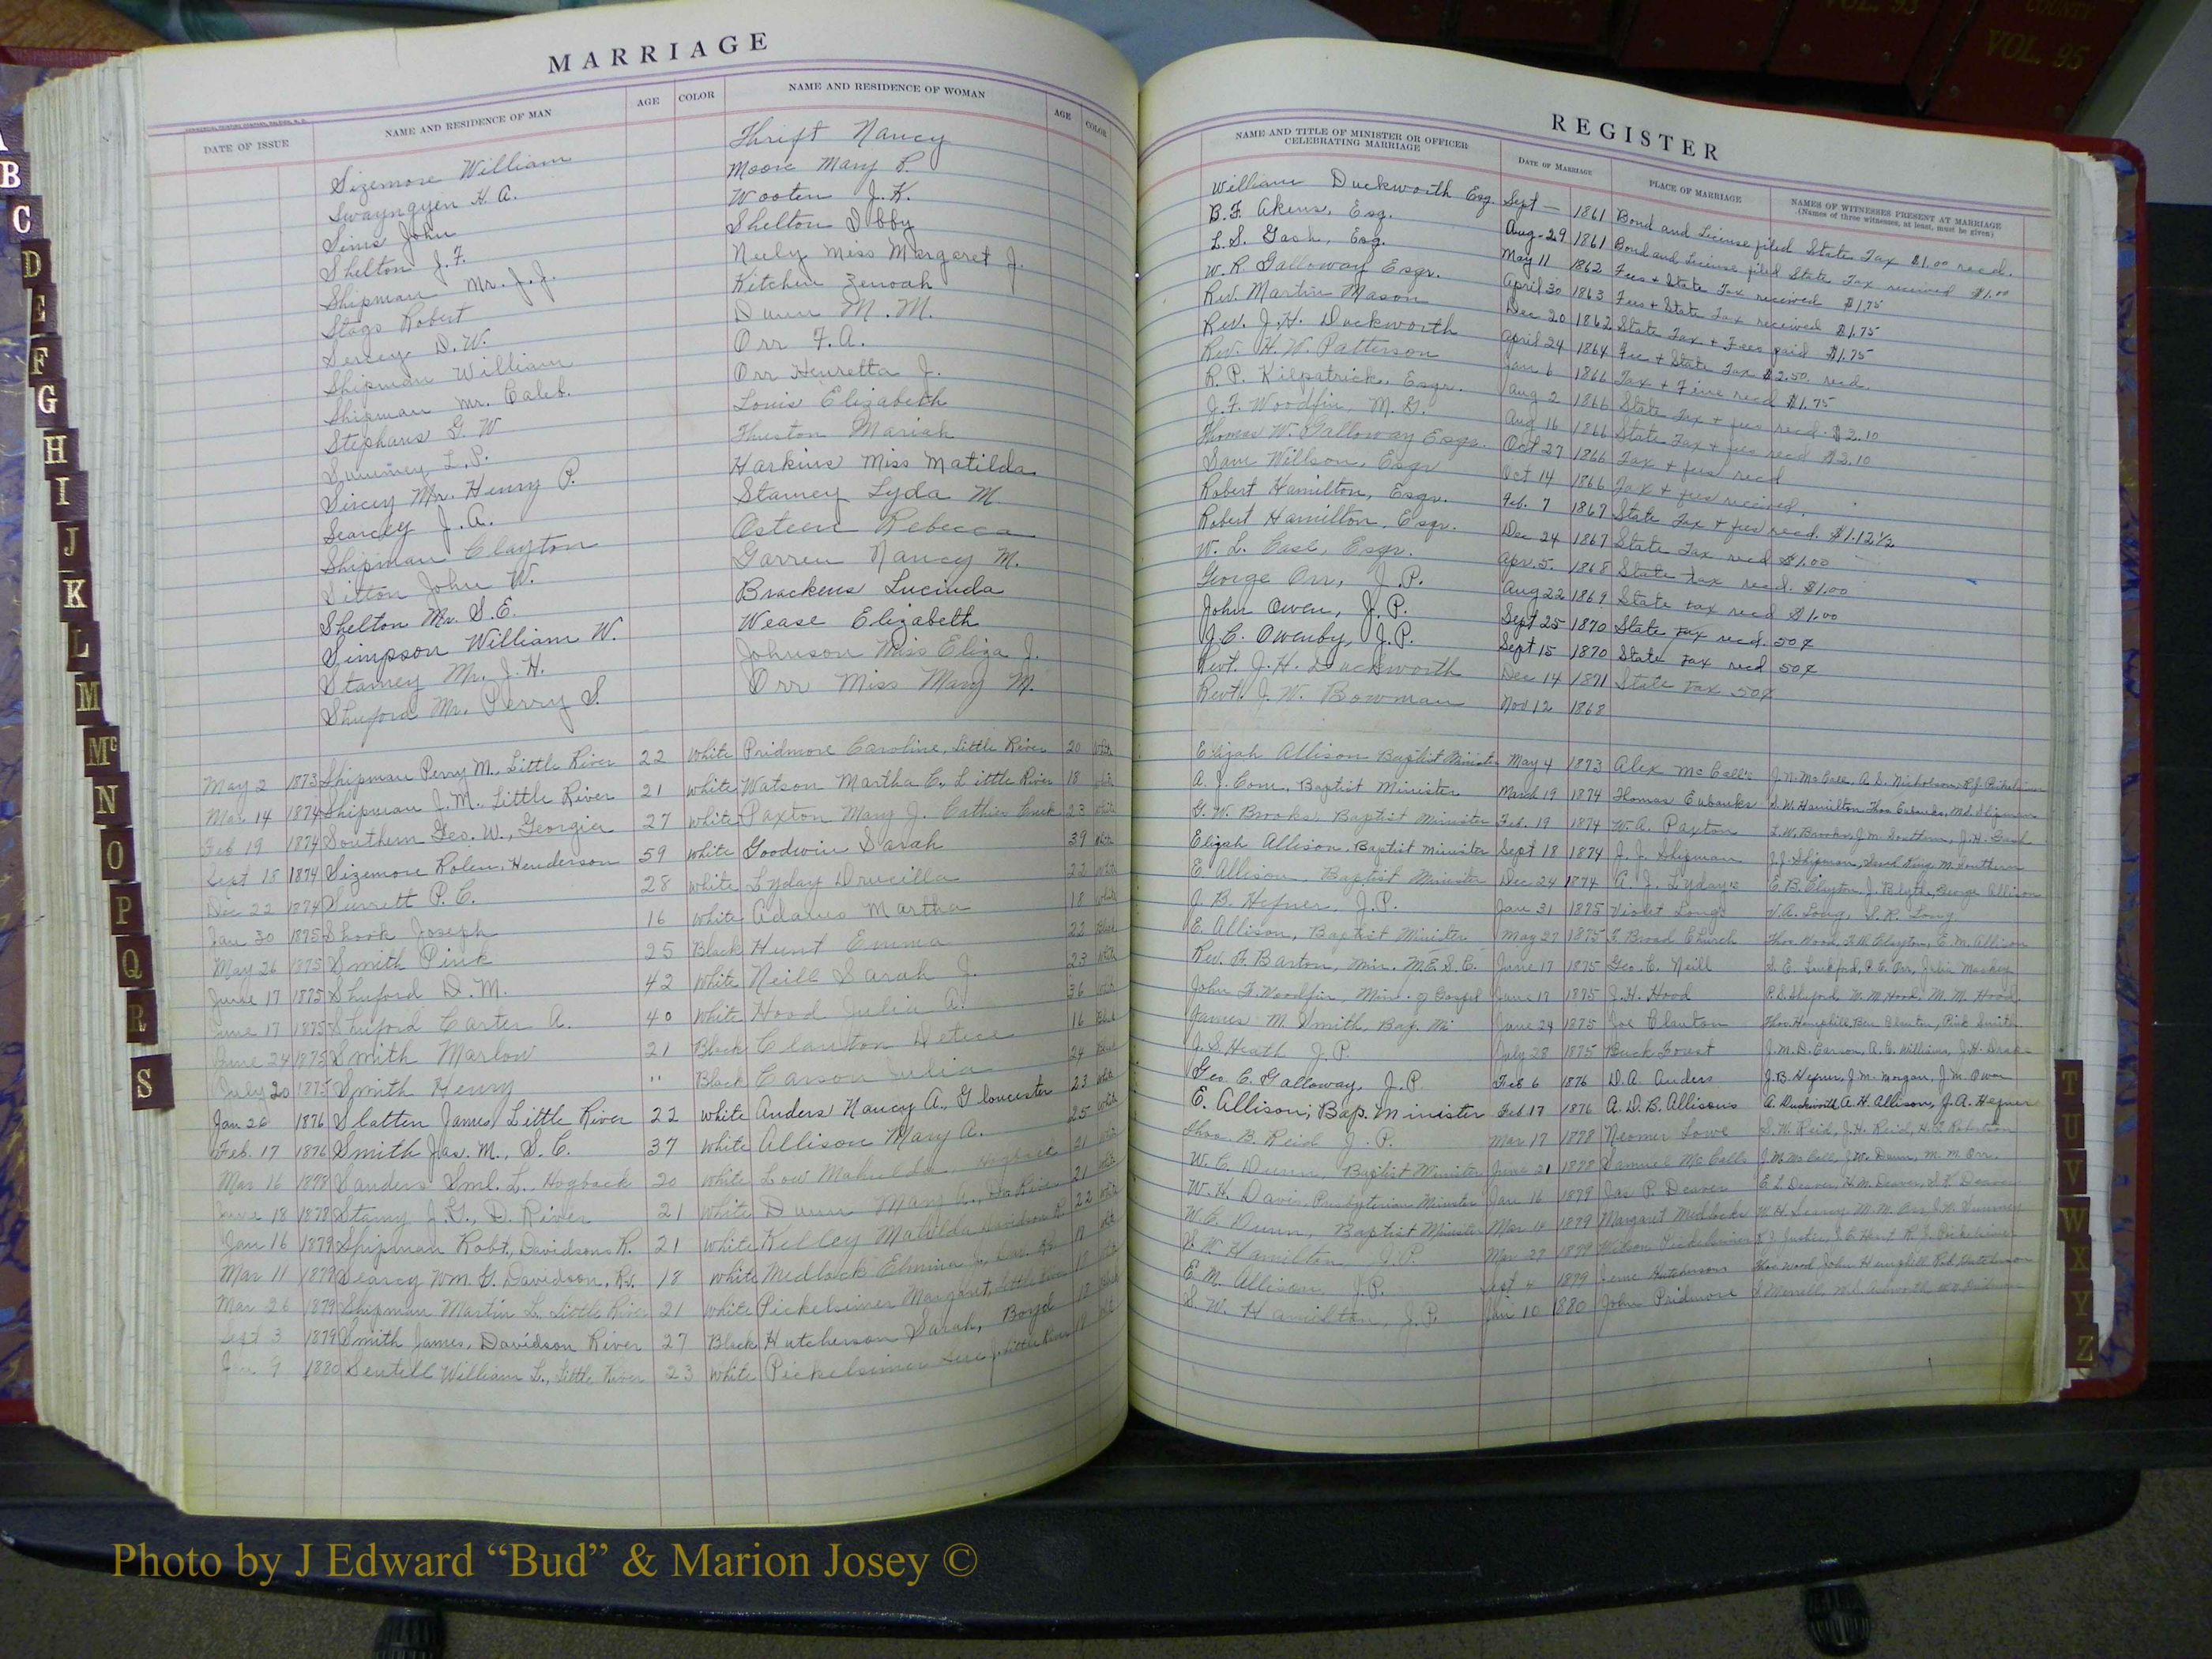 MARRIAGE
DATE OF ISSUE
NAME AND RESIDENCE OF MAN
AGE
COLOR
NAME AND RESIDENCE OF WOMAN
AGE
COLOR
Sizemore William Thrift Nancy
Swayngyen H. A. Moore Mary P.
Sims John Wooten J. K.
Shelton J. F. Shelton Dibby
Shipman Mr. J. J. Neely Miss Margaret J.
Stags Robert Kitchen Zenoah
Sercey D. W. Dunn M. M.
Shipman William Orr F. A.
Shipman Mr. Caleb. Orr Henretta J.
Stephens G. W Louis Elizabeth
Sumney L. P. Thuston Mariah
Sircey Mr. Henry P. Harkins Miss Matilda
Searcey J. A. Stamey Lyda M.
Shipman Clayton Osteen Rebecca
Sitton John W. Garren Nancy M.
Shelton Mr. S. E. Brackens Lucinda
Simpson William W. Wease Elizabeth
Stamey Mr. J. H. Johnson Miss Eliza J.
Shuford Mr. Perry S. Orr Miss Mary M.
May 2 1873 Shipman Perry M., Little River 22 white Pridmore Caroline, Little River 20 white
Mar 14 1874 Shipman J. M., Little River 21 white Watson Martha E., Little River 18 white
Feb 19 1874 Southern Geo. W., Georgia 27 white Paxton Mary J. Cathies Creek 23 white
Sept 18 1874 Sizemore Rolen, Henderson 59 white Goodwin Sarah 39 white
Dec 22 1874 Surrett P. C. 28 white Lyday Drucilla 22 white
Jan 30 1875 Shook Joseph 16 white Adams Martha 18 white
May 26 1875 Smith Pink 25 Black Hunt Emma 22 Black
June 17 1875 Shuford D. M. 42 white Neill Sarah J. 23 white
June 17 1875 Shuford Carter A. 40 white Hood Julia A. 36 white
June 24 1875 Smith Marlow 21 Black Clawton Detice 16 Black
July 20 1875 Smith Henry " Black Carson Julia 24 Black
Jan 26 1876 Slatten James, Little River 22 white Anders Nancy A., Gloucester 23 white
Feb. 17 1876 Smith Jas. M., S. C. 37 white Allison Mary A. 25 white
Mar 16 1878 Sanders Sml. L., Hogback 20 white Low Hogback 21 white
June 18 1878 Stamy J. G., D. River 21 white Dunn Mary River 21 white
Jan 16 1879 Shipman Robt., Davidsons R. 21 white Kelley Matilda Davidson R. 22 white
Mar 11 1879 Searcy Wm. G. Davidson. Rv. 18 white Medlock Elmina
Mar 26 1879 Shipman Martin L. Little River 21 white Pickelsimer Margaret, Little River
Sept 3 1879 Smith James, Davidson River 27 Black Hutcherson Sarah, Boyd 18 Black
Jan 9 1880 Sentell William L., Little River 23 white Pickelsimer Little River
REGISTER
NAME AND TITLE OF MINISTER OR OFFICER
CELEBRATING MARRIAGE
DATE OF MARRIAGE
PLACE OF MARRIAGE
NAMES OF WITNESSES PRESENT AT MARRIAGE
(Names of three witnesses, at least, must be given)
William Duckworth Esq. Sept — 1861 Bond and License filed State Tax $1.00 recd.
B. F. Akens, Esq. Aug-29 1861 Bond and License filed State Tax received $1.00
L. S. Gash, Esq. May 11 1862 Fees + State Tax received $1.75
W. R Galloway Esqr. April 30 1863 Fees + State Tax received $1.75
Rev. Martin Mason Dec 20 1862 State Tax + Fees paid $1.75
Rev. J. H. Duckworth April 24 1864 Fee + State Tax $2.50. recd.
Rev. H. W. Patterson Jan 6 1866 Tax + Fees recd $1.75
R. P. Kilpatrick, Esqr. Aug 2 1866 State Tax + fees recd. $2.10
J. F. Woodfin, M. G. Aug 16 1866 State Tax + fees recd $2.10
Thomas W. Galloway Esqr. Oct 27 1866 Tax + fees recd
Sam Willson, Esqr Oct 14 1866 Tax + fees received.
Robert Hamilton, Esqr. Feb. 7 1867 State Tax + fees recd. $1.12½
Robert Hamilton, Esqr. Dec 24 1867 State Tax recd $1.00
W. L. Case, Esqr. Apr. 5. 1868 State Tax recd. $1.00
George Orr, J. P. Aug 22 1869 State tax recd $1.00
John Owen, J. P. Sept 25 1870 State Tax recd. 50¢
J. C. Owenby, J. P. Sept 15 1870 State Tax recd 50¢
Revt. J. H. Duckworth Dec 14 1871 State Tax 50¢
Revt. J. W. Bowman Nov 12 1868
Elijah Allison Baptist Minister May 4 1873 Alex McCall's J. N. McCall, A. S. Nicholson, R. J. Pickelsimer
A. J. Baptist Minister March 19 1874 Thomas Eubanks S. W. Hamilton, Thos Eubanks, M. L. Shipman
G. W. Brooks, Baptist Minister Feb. 19 1874 W. A. Paxton L. W. Brooks, J. M. Southern, J. H. Gash
Elijah Allison, Baptist Minister Sept 18 1874 J. J. Shipman J. J. Shipman, King, M. Southern
E Allison, Baptist Minister Dec 24 1874 A. J. Lyday's E. B. Clayton, J. Blythe, George Allison
J. B. Hefner, J. P. Jan 31 1875 Violet Longs V. A. Long, S. R. Long
E. Allison, Baptist Minister May 27 1875 F. Broad Church Thos Wood, F. W. Clayton, E. M. Allison
Rev. F. Barton, Min. M. E. S. C. June 17 1875 Geo. C. Neill S. E. Luckford, Orr, Julia Mackey
John F. Woodfin, Min. of Gospel June 17 1875 J. H. Hood P. S. Shuford W. W. Hood, M. M. Hood
James M. Smith, Bap. Mi June 24 1875 Joe Clawton Thos Hemphill, Ben Clawton, Pink Smith
J. S Heath J. P. July 28 1875 Buck Forest J. M. D. Carson, A. C. Williams, J. H. Drake
Geo. C. Galloway, J. P Feb 6 1876 D. A. Anders J. B. Hefner, J. M. Morgan, J. M. Owen
E. Allison, Bap. Minister Feb 17 1876 A. D. B. Allisons A. Duckworth, A. H. Allison, J. A. Hefner
Thos. B. Reid J. P. Mar 17 1878 Neomer Lowe S. W. Reid, J. H. Reid, Robertson
W. C. Dunn, Baptist Minister June 21 1878 Samuel McCalls J. M. McCall, J. W. Dunn, M. M. Orr.
W. H. Davis, Presbyterian Minister Jan 16 1879 Jas P. Deaver E. L. Deaver, H. M. Deaver, Deaver
W. C. Dunn, Baptist Minister Mar 18 1879 Margaret Medlocks
S. W. Hamilton, J. P. Mar 27 1879 Wilson Pickelsimer
E. M. Allison, J. P. Sept 4 1879 Hutcherson Thos Wood, John Hemphill Hutcherson
S. W. Hamilton, J. P. Jan 10 1880 John Pridmore
B
C
D
E
F
G
H
I
J
K
L
M
Mc
N
O
P
Q
R
S
T
U
V
W
X
Y
Z
VOL. 93
COUNTY
VOL. 95
Photo by J Edward “Bud” & Marion Josey ©